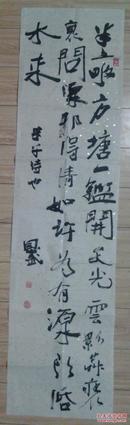 半畝方塘一鑑開天光雲影共
問渠那得清如許為有源頭活
水来 朱子诗也